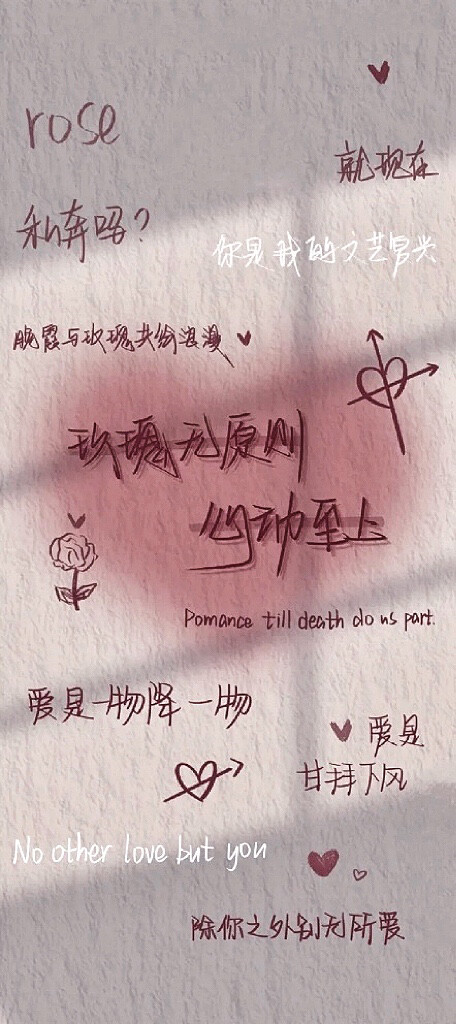 rose
就现在
私奔吗?
你是我的文艺复兴
晚霞与玫瑰共给浪漫
玫瑰无原则
心动至上
Pomance till death do us part.
爱是一物降一物
爱是
甘拜下风
No other love but you
除你之外别无所爱